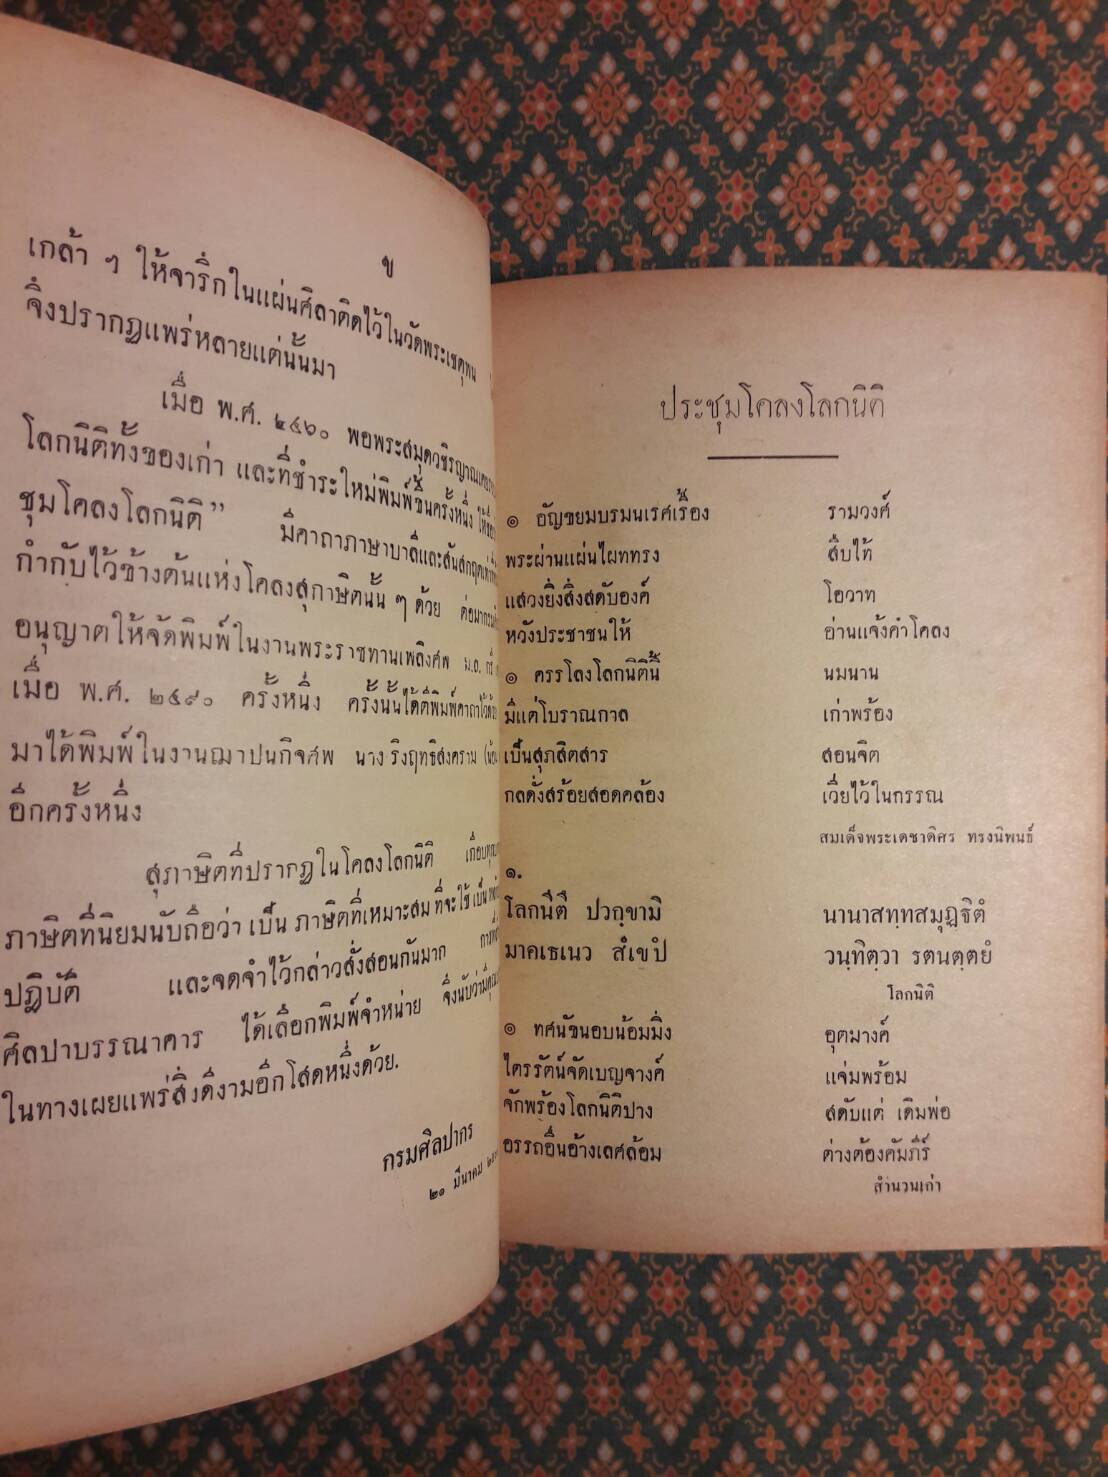 ข
เกล้า ๆ ให้จาริ่กในแผ่นศิลาติดไว้ในวัดพระเชตุพน
จึ่งปรากฏแพร่หลายแต่นั้นมา
เมื่อ พ.ศ. ๒๔๖๐ หอพระสมุดวชิรญาณ
โลกนิติทั้งของเก่า และที่ชำระใหม่พิมพ์ขึ้นครั้งหนึ่ง
ชุมโคลงโลกนิติ” มีคาถาภาษาบาลีและสันสกฤต
กำกับไว้ข้างต้นแห่งโคลงสุภาษิตนั้น ๆ ด้วย ต่อมา
อนุญาตให้จัดพิมพ์ในงานพระราชทานเพลิงศพ
เมื่อ พ.ศ. ๒๔๙๐ ครั้งหนึ่ง ครั้งนั้นได้ตีพิมพ์คาถาไว้ด้วย
มาได้พิมพ์ในงานฌาปนกิจศพ นาง ริงฤทธิสงคราม
อีกครั้งหนึ่ง
สุภาษิตที่ปรากฏในโคลงโลกนิติ
ภาษิตที่นิยมนับถือว่า เป็น ภาษิตที่เหมาะสม ที่จะใช้ เป็น
ปฏิบัติ และจดจำไว้กล่าวสั่งสอนกันมาก
ศิลปาบรรณาคาร ได้เลือกพิมพ์จำหน่าย จึงนับว่า
ในทางเผยแพร่สิ่งดีงามอีกโสดหนึ่งด้วย.
กรมศิลปากร
๒๐ มีนาคม
ประชุมโคลงโลกนิติ
๏ อัญขยมบรมนเรศเรื้อง รามวงศ์
พระผ่านแผ่นไผททรง สืบไท้
แสวงยิ่งสิ่งสดับองค์ โอวาท
หวังประชาชนให้ อ่านแจ้งคำโคลง
๏ ครรโลงโลกนิตินี้ นมนาน
มีแต่โบราณกาล เก่าพร้อง
เป็นสุภสิตสาร สอนจิต
กลดั่งสร้อยสอดคล้อง เวี่ยไว้ในกรรณ
สมเด็จพระเดชาดิศร ทรงนิพนธ์
๑.
โลกนีตึ ปวกฺขามิ นานาสตฺถสมุฏฺฐิตํ
มาคเธเนว สํเขปํ วนฺทิตฺวา รตนตฺตยํ
โลกนิติ
๏ ทศนัขนอบน้อมมิ่ง อุตมางค์
ไตรรัตน์จัดเบญจางค์ แจ่มพร้อม
จักพร้องโลกนิติปาง สดับแต่ เดิมพ่อ
อรรถอื่นอ้างเลศล้อม ต่างต้องคัมภีร์
สำนวนเก่า